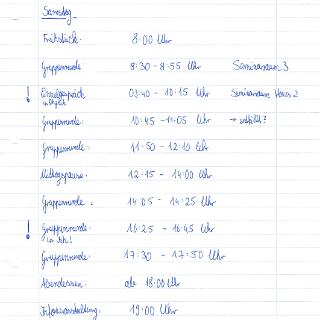 Samstag
Frühstück: 8:00 Uhr
Gruppenrunde 8:30 - 8:55 Uhr Seminarraum 3
! Einzelgespräch 09:40 - 10:15 Uhr Seminarraum Haus 2
Gruppenrunde: 10:45 - 11:05 Uhr →
Gruppenrunde: 11:50 - 12:10 Uhr
Mittagspause: 12:15 - 14:00 Uhr
Gruppenrunde: 14:05 - 14:25 Uhr
! Gruppenrunde: 16:25 - 16:45 Uhr
Gruppenrunde: 17:30 - 17:50 Uhr
Abendessen: ab 18:00 Uhr
Infoveranstaltung: 19:00 Uhr